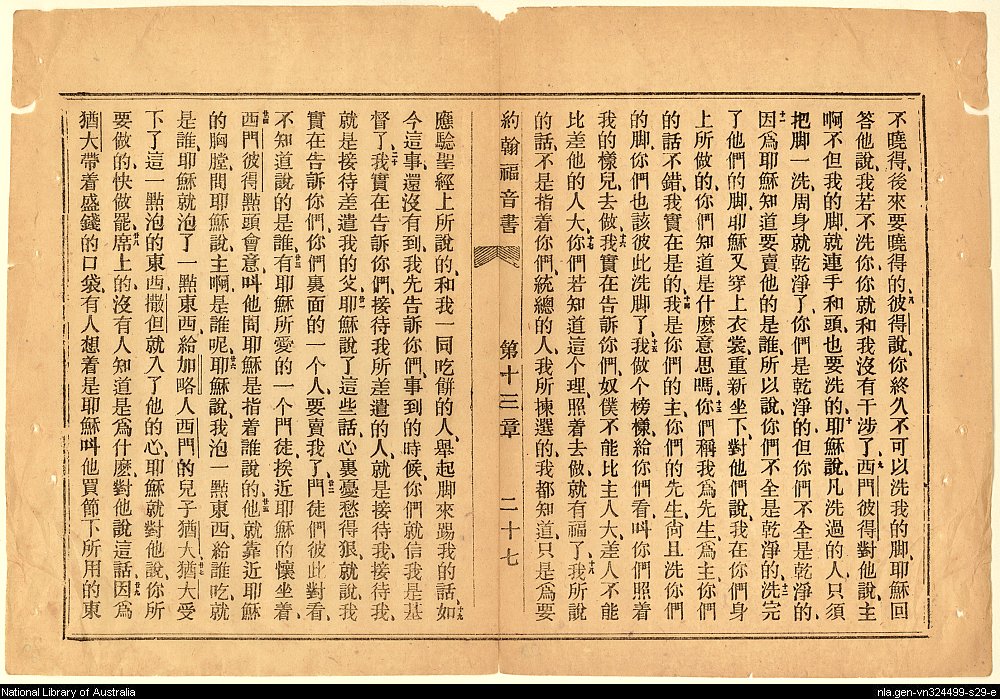 不曉得、後來要曉得的、彼得說、你終久不可以洗我的脚、耶穌回
答他說、我若不洗你、你就和我沒有干涉了、西門彼得對他說、主
啊、不但我的脚、就連手和頭、也要洗的、耶穌說、凡洗過的人、只須
把脚一洗、周身就乾淨了、你們是乾淨的、但你們不全是乾淨的、
因爲耶穌知道要賣他的是誰、所以說、你們不全是乾淨的、洗完
了他們的脚、耶穌又穿上衣裳、重新坐下、對他們說、我在你們身
上所做的、你們知道是什麽意思嗎、你們稱我爲先生、爲主、你們
的話不錯、我實在是的、我是你們的主、你們的先生、尙且洗你們
的脚、你們也該彼此洗脚了、我做个榜樣給你們看、叫你們照着
我的樣兒去做、我實在告訴你們、奴僕不能比主人大、差人不能
比差他的人大、你們若知道這个理、照着去做、就有福了、我所說
的話、不是指着你們統總的人、我所揀選的、我都知道、只是爲要
約翰福音書 第十三章 二十七
應驗聖經上所說的、和我一同吃餅的人、舉起脚來踢我的話、如
今這事、還沒有到、我先告訴你們、事到的時候、你們就信我是基
督了、我實在告訴你們、接待我所差遣的人、就是接待我、接待我、
就是接待差遣我的父、耶穌說了這些話、心裏憂愁得狠、就說、我
實在告訴你們、你們裏面的一个人、要賣我了、門徒們彼此對看、
不知道說的是誰、有耶穌所愛的一个門徒、挨近耶穌的懷坐着、
西門彼得點頭會意、叫他問耶穌是指着誰說的、他就靠近耶穌
的胸膛、問耶穌說、主啊、是誰呢、耶穌說、我泡一點東西給誰吃、就
是誰、耶穌就泡了一點東西、給加略人西門的兒子猶大、猶大受
下了這一點泡的東西、撒但就入了他的心、耶穌就對他說、你所
要做的、快做罷、席上的沒有人知道是爲什麽對他說這話、因爲
猶大帶着盛錢的口袋、有人想着是耶穌叫他買節下所用的東
National Library of Australia
nla.gen-vn324499-s29-e